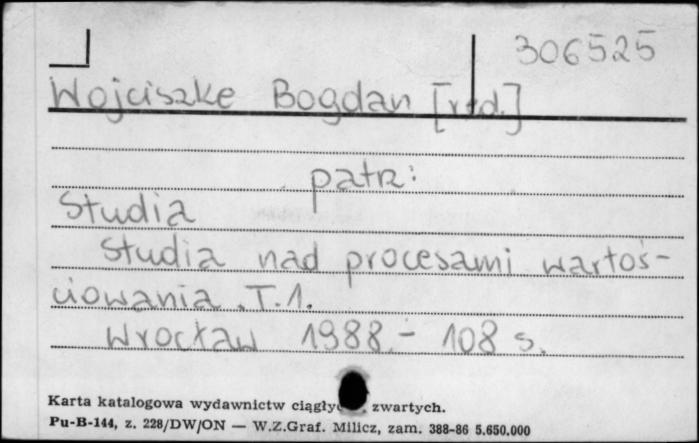 306525
Wojciszke Bogdan [red.]
patrz:
Studia
Studia nad procesami wartoś-
ciowania. T.1.
Wrocław 1988 - 108 s.
Karta katalogowa wydawnictw zwartych.
Pu-B-144, z. 228/DW/ON — W.Z.Graf. Milicz, zam. 388-86 5.650.000